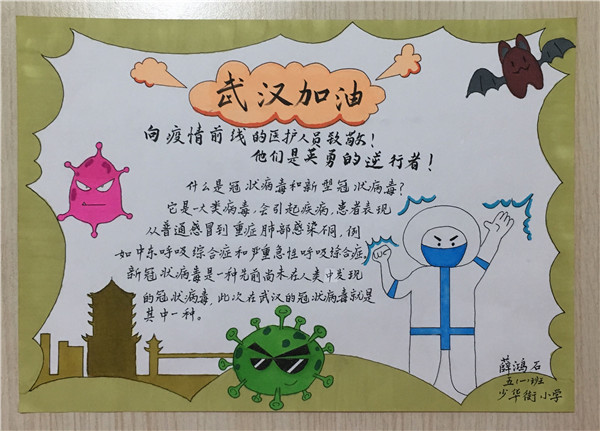 武汉加油
向疫情前线的医护人员致敬!
他们是英勇的逆行者!
什么是冠状病毒和新型冠状病毒?
它是一大类病毒,会引起疾病,患者表现
从普通感冒到重症肺部感染不同,例
如中东呼吸综合症和严重急性呼吸综合症。
新冠状病毒是一种先前尚未在人类中发现
的冠状病毒,此次在武汉的冠状病毒就是
其中一种。
薛鸿石
五(一)班
少华街小学